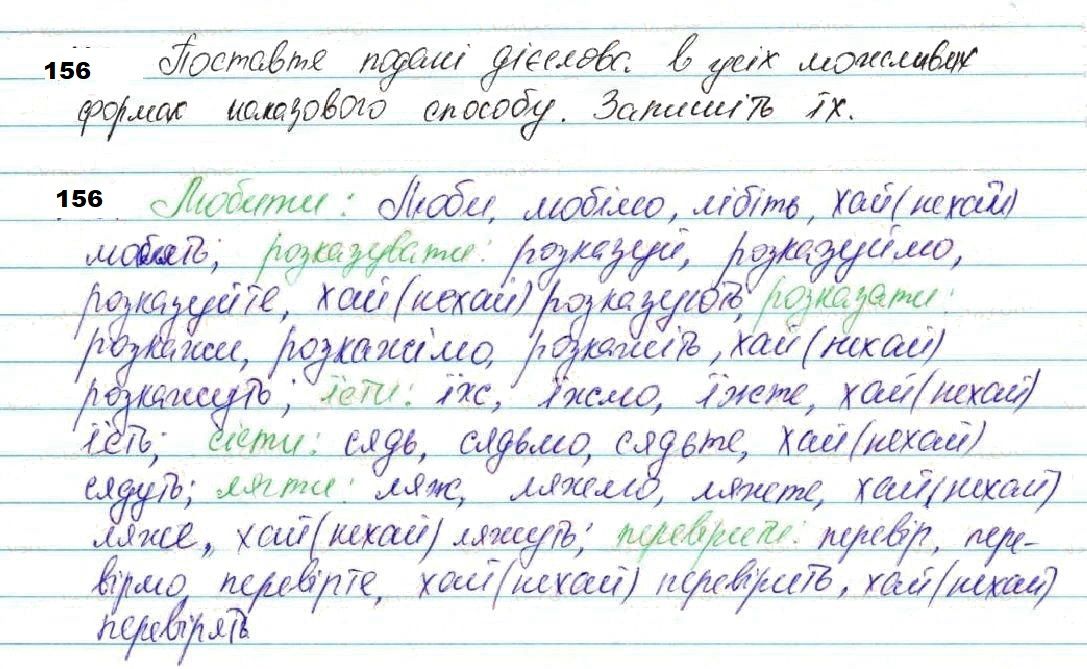 156 Поставте подані дієслова в усіх можливих
формах наказового способу. Запишіть їх.
156 Любити: Люби, любімо, любіть, хай (нехай)
люблять; розказувати: розказуй, розказуймо,
розказуйте, хай (нехай) розказують; розказати:
розкажи, розкажімо, розкажіть, хай (нехай)
розкажуть; їсти: їж, їжмо, їжте, хай (нехай)
їсть; сісти: сядь, сядьмо, сядьте, хай (нехай)
сядуть; лягти: ляж, ляжмо, ляжте, хай (нехай)
ляже, хай (нехай) ляжуть; перевірити: перевір, пере-
вірмо, перевірте, хай (нехай) перевірить, хай (нехай)
перевірять